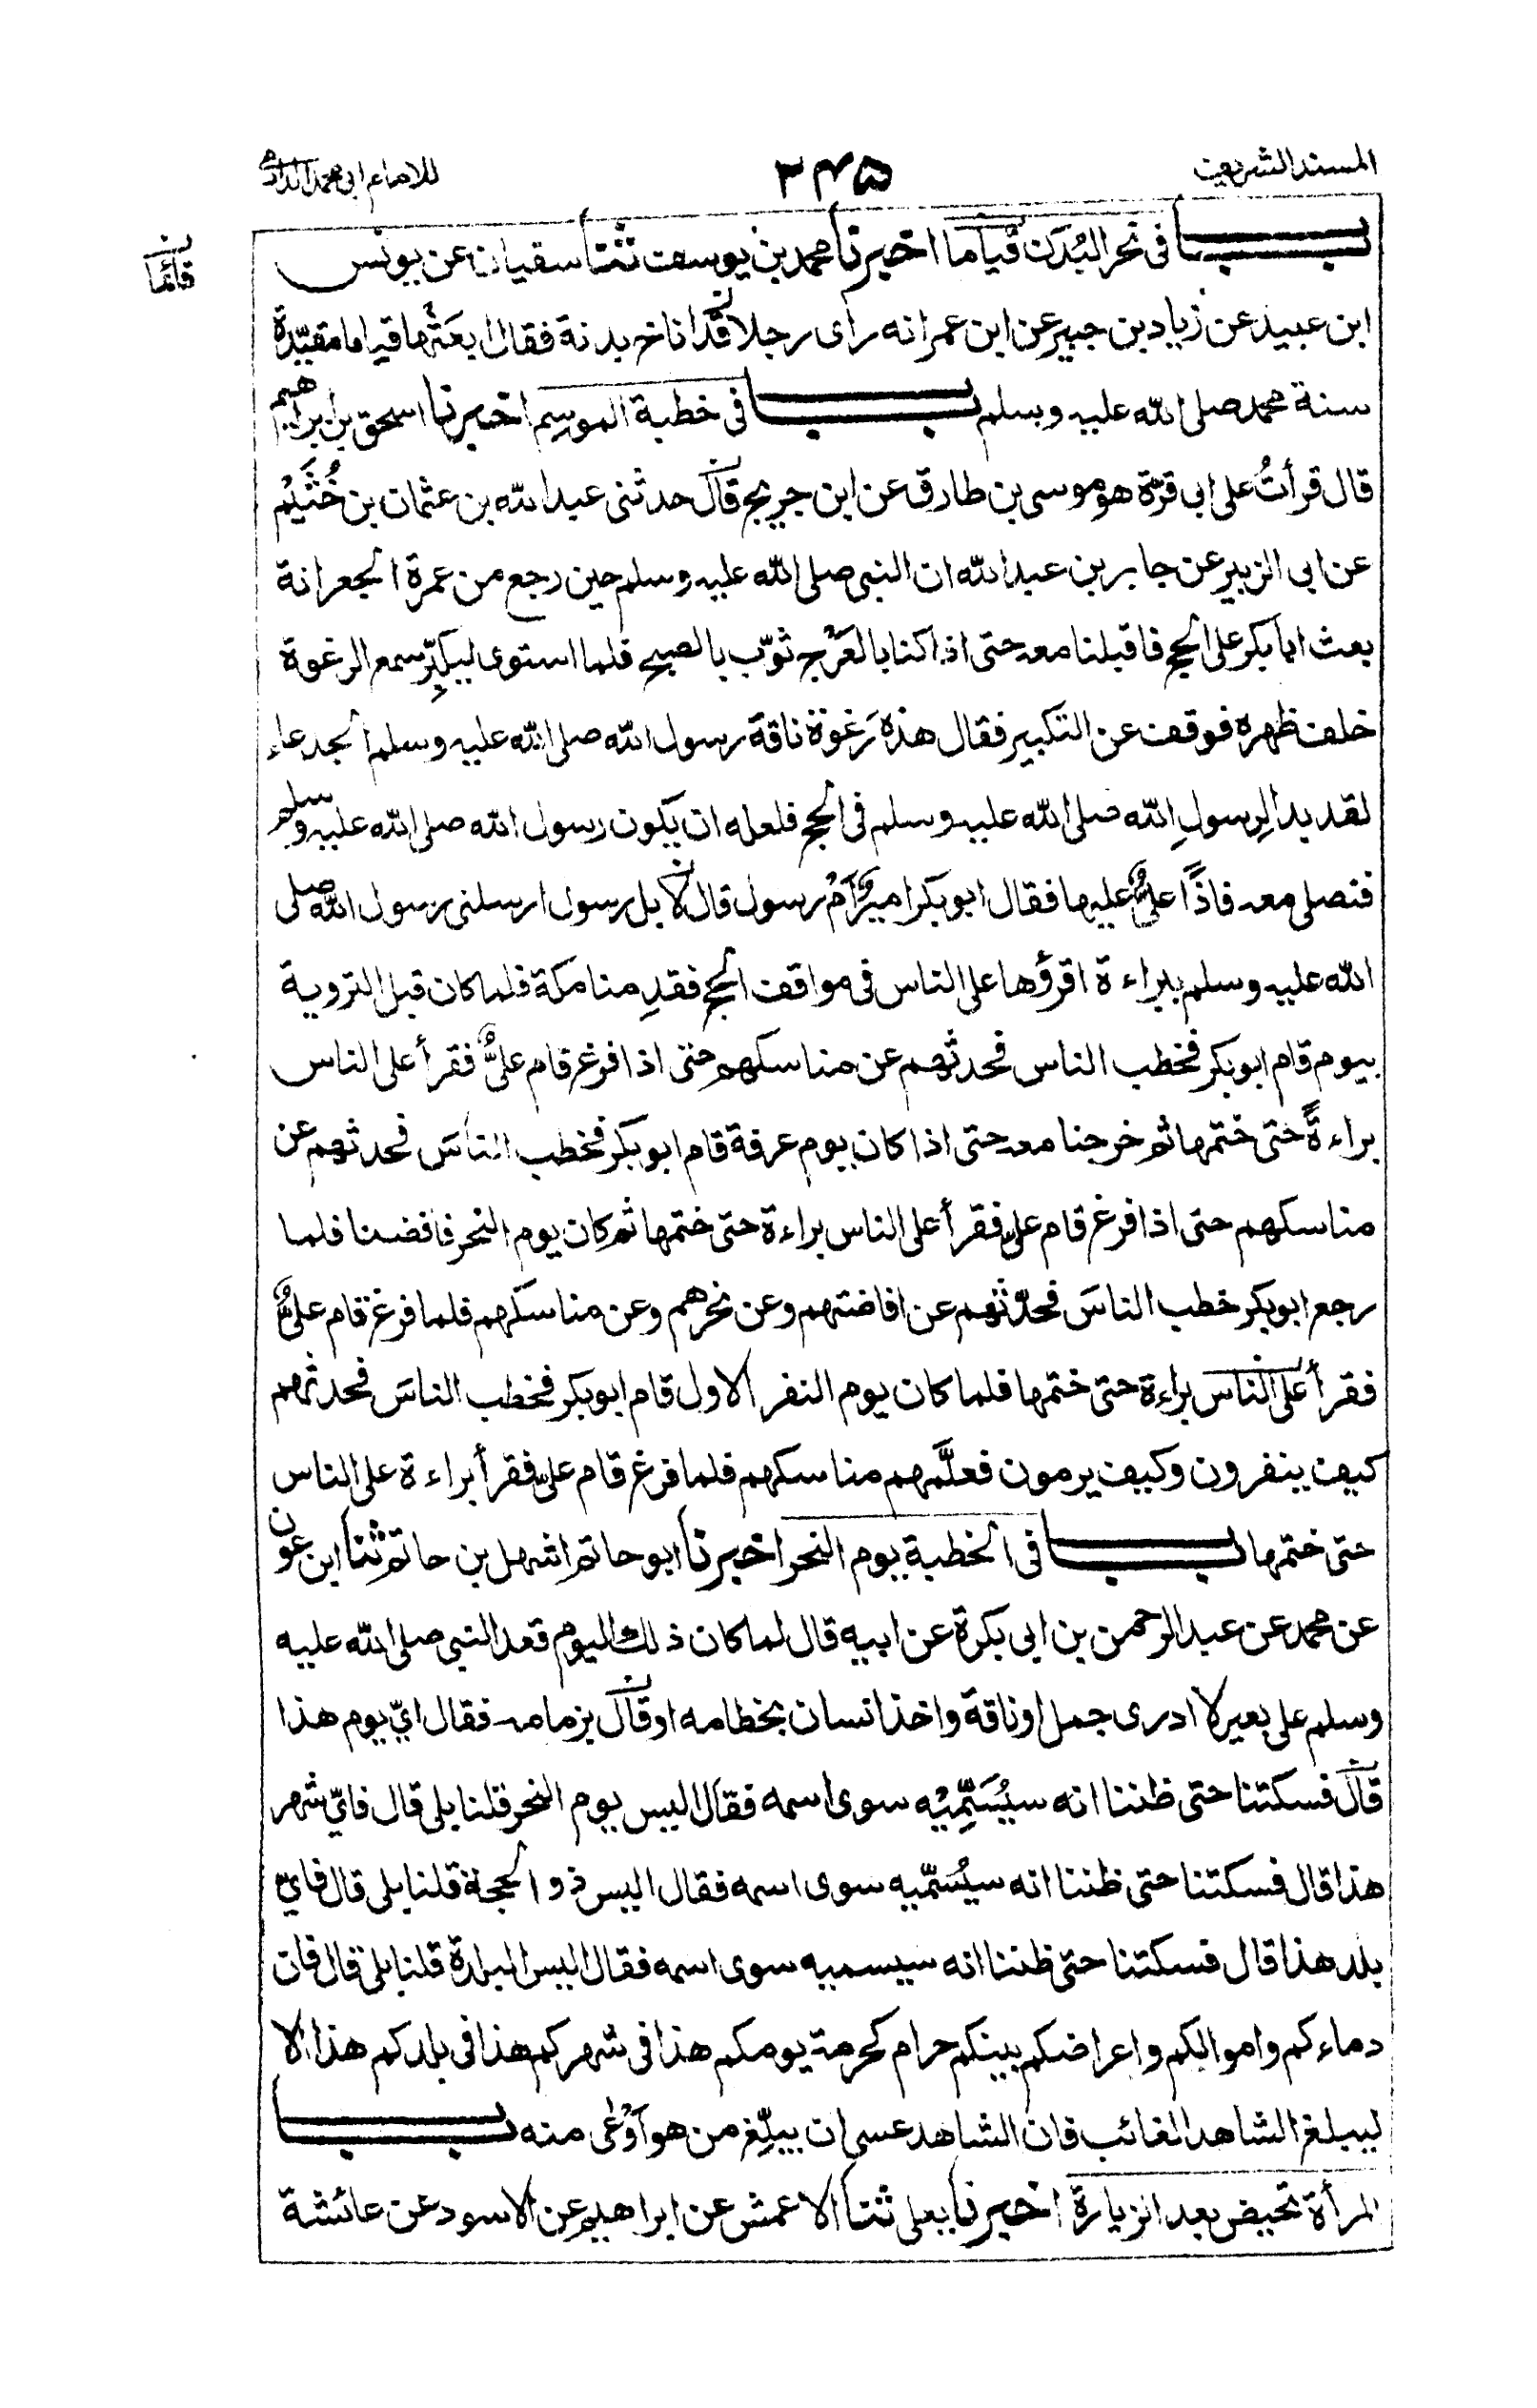 المسند الشريف ٢٤٥ للامام ابى محمد الدارمى
بـــــاب فى نحر البُدَن قياما اخبرنا محمد بن يوسف ثنا سفيان عن يونس
قائما
ابن عبيد عن زياد بن جبير عن ابن عمر انه راى رجلا قد اناخ بدنة فقال ابعَثْها قياما مقيّدة
سنة محمد صلى الله عليه وسلم بـــــاب فى خطبة الموسِم اخبرنا اسحق بن ابراهيم
قال قرأتُ على ابى قرّة هو موسى بن طارق عن ابن جريج قال حدثنى عبد الله بن عثمان بن خُثَيْم
عن ابى الزبير عن جابر بن عبد الله ان النبى صلى الله عليه وسلم حين رجع من عمرة الجعرانة
بعث ابا بكر على الحج فاقبلنا معه حتى اذا كنا بالعَرْج ثوّب بالصبح فلما استوى ليكبّر سمع الرغوة
خلف ظهره فوقف عن التكبير فقال هذه رَغوة ناقة رسول الله صلى الله عليه وسلم الجدعاء
لقد بدا لِرسولِ الله صلى الله عليه وسلم فى الحج فلعله ان يكون رسول الله صلى الله عليه وسلم
فنصلى معه فاذًا علىٌّ عليها فقال ابو بكر اميرٌ اَمْ رسول قال لا بل رسول ارسلنى رسول الله صلى
الله عليه وسلم ببراءة اقرؤها على الناس فى مواقف الحج فقدِمنا مكة فلما كان قبل التروية
بيوم قام ابو بكر فخطب الناس فحدثهم عن مناسكهم حتى اذا فرغ قام علىٌّ فقرأ على الناس
براءةً حتى ختمها ثم خرجنا معه حتى اذا كان يوم عرفة قام ابو بكر فخطب الناسَ فحدثهم عن
مناسكهم حتى اذا فرغ قام علىّ فقرأ على الناس براءة حتى ختمها ثم كان يوم النحر فافضنا فلما
رجع ابو بكر خطب الناسَ فحدّثهم عن افاضتهم وعن نحرهم وعن مناسكهم فلما فرغ قام علىٌّ
فقرأ على الناس براءة حتى ختمها فلما كان يوم النفر الاول قام ابو بكر فخطب الناسَ فحدثهم
كيف ينفرون وكيف يرمون فعلَّمهم مناسكهم فلما فرغ قام علىّ فقرأ براءة على الناس
حتى ختمها بـــــاب فى الخطبة يوم النحر اخبرنا ابو حاتم اشهل بن حاتم ثنا ابن عون
عن محمد عن عبد الرحمن بن ابى بكرة عن ابيه قال لما كان ذلك اليوم قعد النبى صلى الله عليه
وسلم على بعير لا ادرى جمل او ناقة واخذ انسان بخطامه او قال بزمامه فقال اىّ يوم هذا
قال فسكتنا حتى ظننا انه سيُسَمِّيْه سوى اسمه فقال اليس يوم النحر قلنا بلى قال فاىّ شهر
هذا قال فسكتنا حتى ظننا انه سيُسَمّيه سوى اسمه فقال اليس ذو الحجة قلنا بلى قال فاىّ
بلد هذا قال فسكتنا حتى ظننا انه سيسميه سوى اسمه فقال اليس البلدة قلنا بلى قال فان
دماءكم واموالكم واعراضكم بينكم حرام كحرمة يومكم هذا فى شهركم هذا فى بلدكم هذا الا
ليبلغ الشاهد الغائب فان الشاهد عسى ان يبلّغ من هو اَوْعٰى منه بـــــاب
المرأة تحيض بعد الزيارة اخبرنا يعلى ثنا الاعمش عن ابراهيم عن الاسود عن عائشة